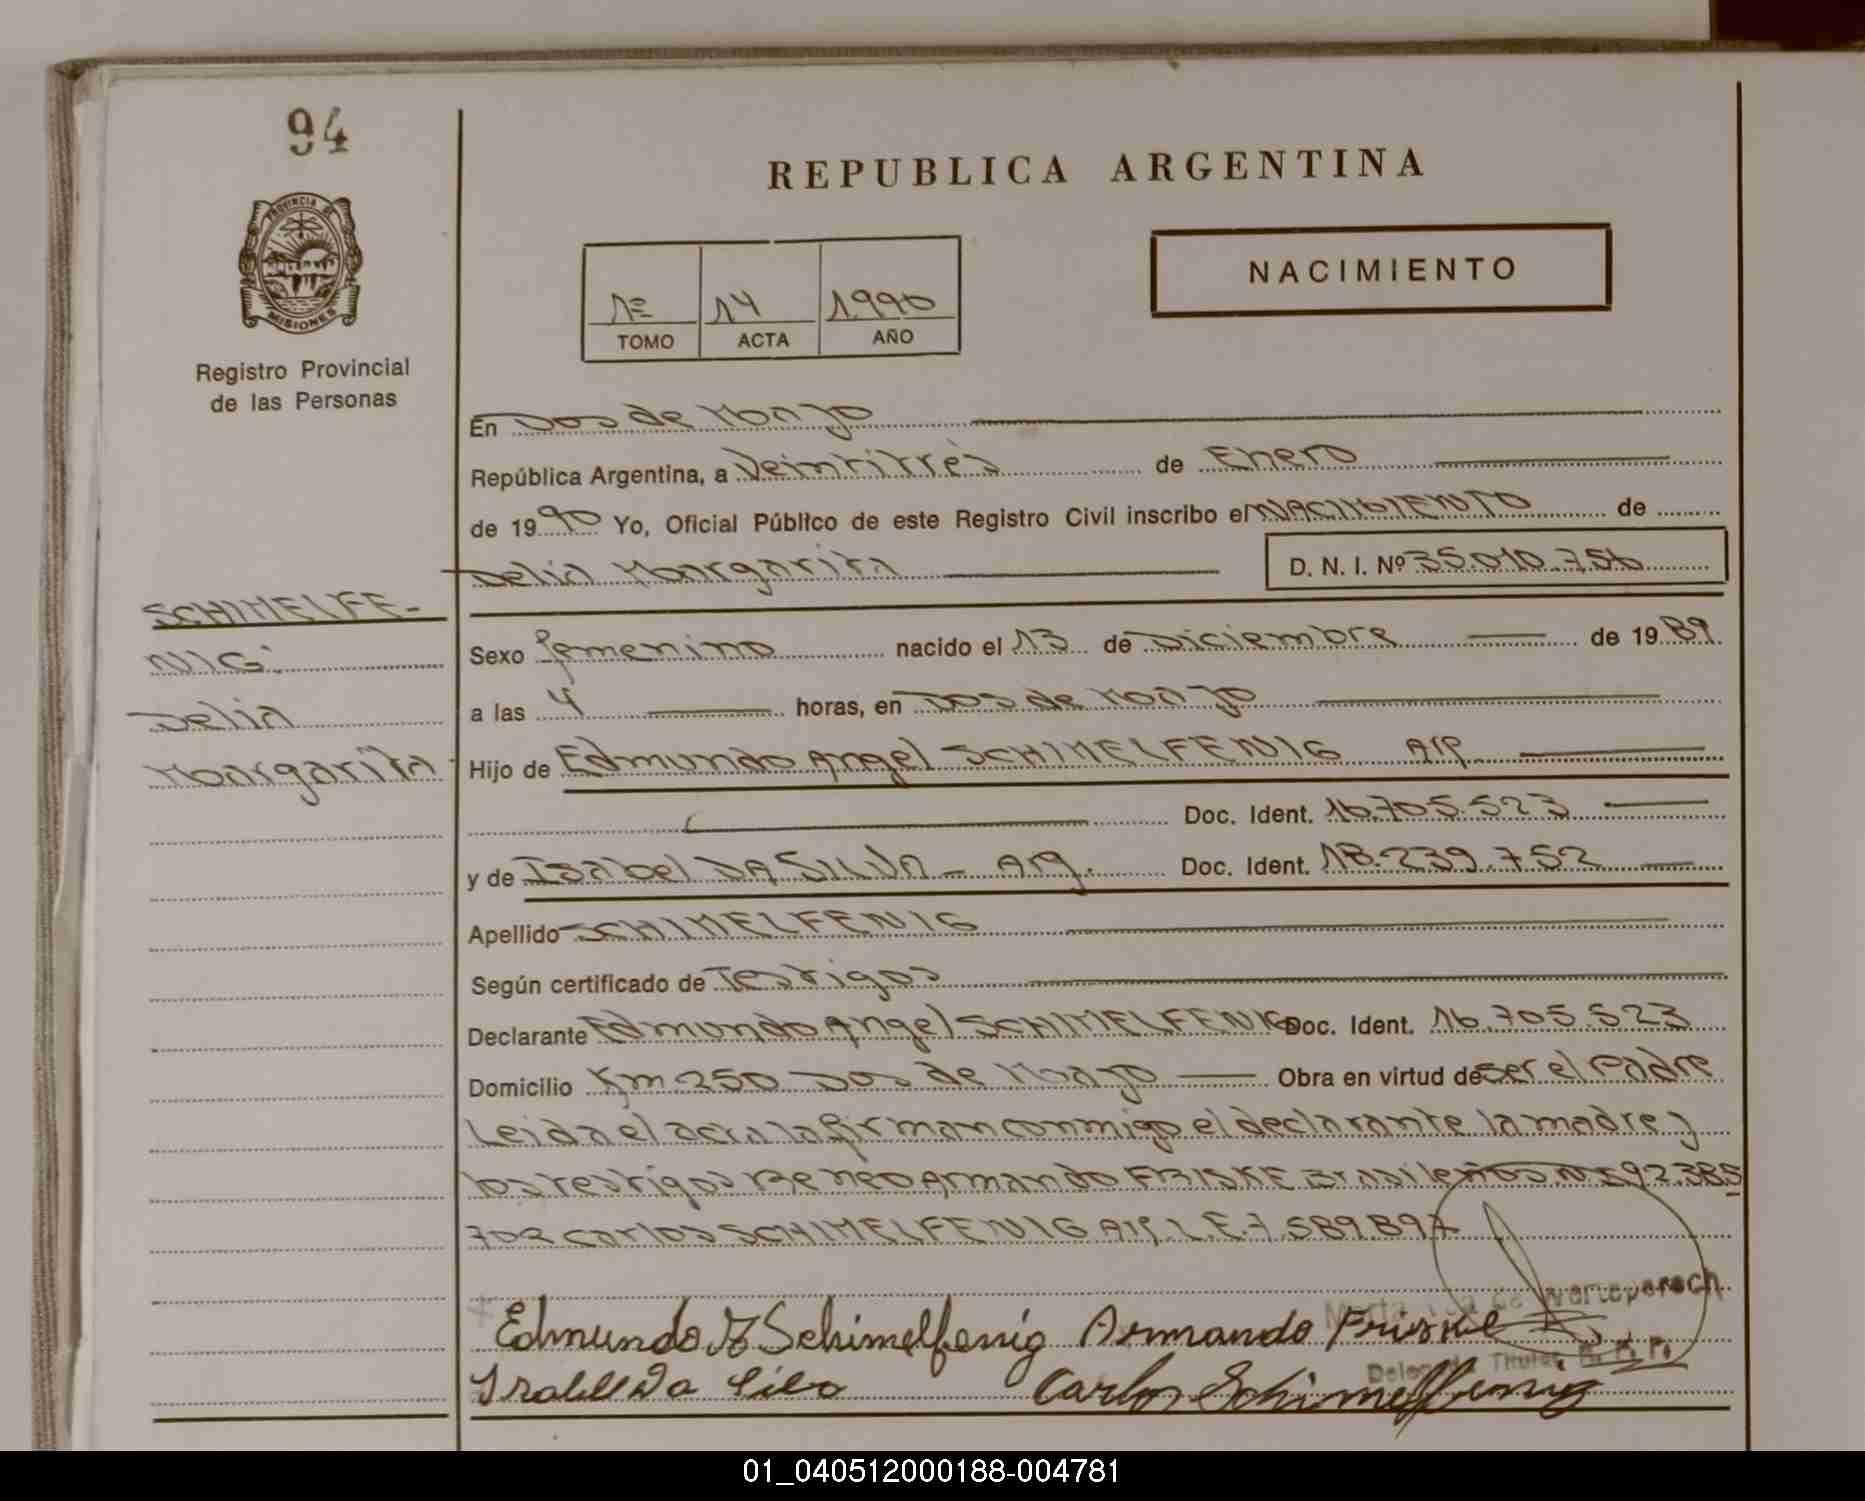 94
REPUBLICA ARGENTINA
PROVINCIA DE
MISIONES
Registro Provincial
de las Personas
NACIMIENTO
1º 14 1.990
TOMO ACTA AÑO
En Dos de Mayo
República Argentina, a Veintitrés de Enero
de 1990 Yo, Oficial Público de este Registro Civil inscribo el NACIMIENTO de
Delia Margarita D. N. I. Nº 35.010.756
SCHIMELFE-
NIG:
Delia
Margarita
Sexo femenino nacido el 13 de Diciembre de 1989
a las 4 horas, en Dos de Mayo
Hijo de Edmundo Angel SCHIMELFENIG Arg.
Doc. Ident. 16.705.523
y de Isabel DA SILVA - Arg. Doc. Ident. 18.239.752
Apellido SCHIMELFENIG
Según certificado de Testigos
Declarante Edmundo Angel SCHIMELFENIG Doc. Ident. 16.705.523
Domicilio Km 250 Dos de Mayo Obra en virtud de ser el Padre
Leida el acta la firman conmigo el declarante la madre y
los testigos Armando FRISKE 592.385
y Dn Carlos SCHIMELFENIG Arg. L.E. 7.589.897
Edmundo A Schimelfenig Armando Friske
Isabel Da Silva Carlos Schimelfenig
Delegada Titular R. P. P.
01_040512000188-004781